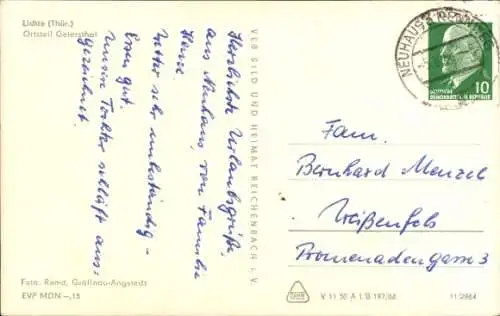 Lichte (Thür.)
Ortsteil Geiersthal
Herzlichste Urlaubsgrüße,
aus Neuhaus, von Familie
Wetter sehr unbeständig -
Essen gut.
Unsere Tochter schläft aus-
gezeichnet.
VEB BILD UND HEIMAT REICHENBACH i. V.
Foto: Remd, Gräfinau-Angstedt
EVP MDN -,15
NEUHAUS
10
DEUTSCHE
DEMOKRATISCHE REPUBLIK
Fam.
Bernhard Menzel
Weißenfels
Promenadengasse 3
V 11 50 A 1/B 197/66
11/2864